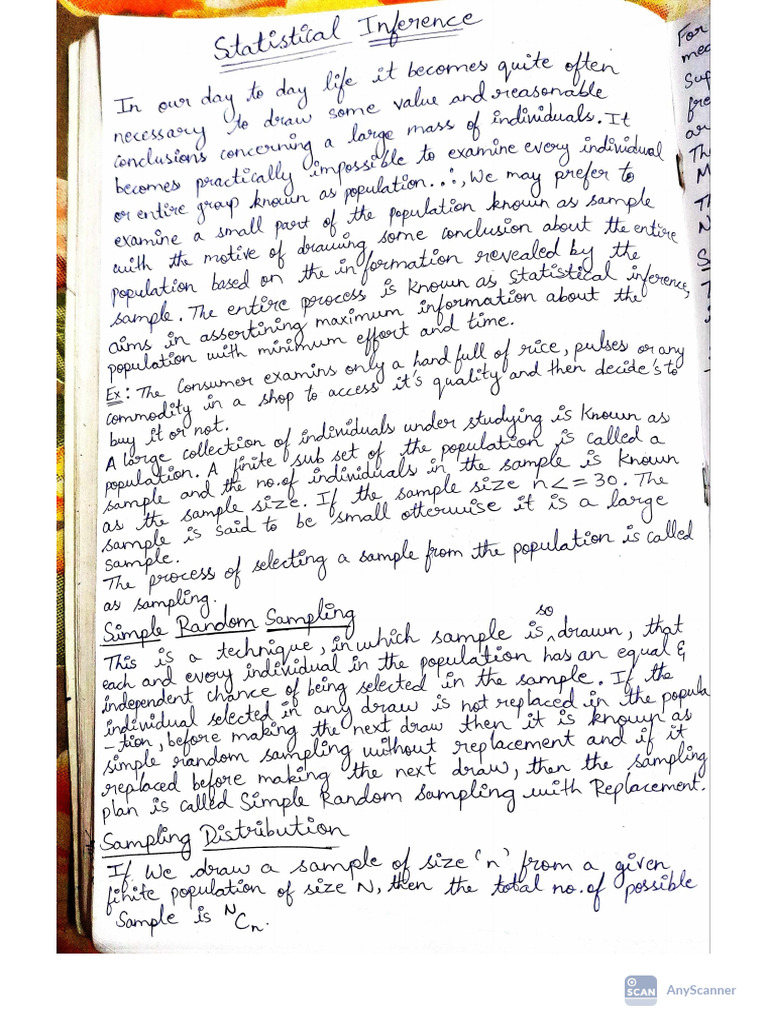 Statistical Inference
In our day to day life it becomes quite often
necessary to draw some value and reasonable
conclusions concerning a large mass of individuals. It
becomes practically impossible to examine every individual
or entire group known as population..:, We may prefer to
examine a small part of the population known as sample
with the motive of drawing some conclusion about the entire
population based on the information revealed by the
sample. The entire process is known as Statistical inference,
aims in assertining maximum information about the
population with minimum effort and time.
Ex: The Consumer examins only a hand full of rice, pulses or any
commodity in a shop to access it's quality and then decide's to
buy it or not.
A large collection of individuals under studying is known as
population. A finite sub set of the population is called a
sample and the no. of individuals in the sample is known
as the sample size. If the sample size n<=30. The
sample is said to be small otterwise it is a large
sample.
The process of selecting a sample from the population is called
as sampling.
Simple Random Sampling
This is a technique, in which sample is so drawn, that
each and every individual in the population has an equal &
independent chance of being selected in the sample. If the
individual selected in any draw is not replaced in the popula
-tion, before making the next draw then it is known as
simple random sampling without replacement and if it
replaced before making the next draw, then the sampling
plan is called Simple Random Sampling with Replacement.
Sampling Distribution
If We draw a sample of size 'n' from a given
finite population of size N, then the total no. of possible
Sample is ᴺCₙ.
For
mea
Sup
fre
ar
Th
M
Th
N
S
SCAN AnyScanner